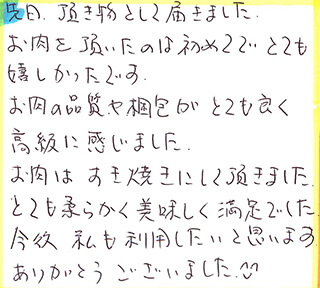 先日、頂き物として届きました。
お肉を頂いたのは初めてで とても
嬉しかったです。
お肉の品質や梱包が とても良く
高級に感じました。
お肉は すき焼きにして頂きました。
とても柔らかく美味しく満足でした。
今後 私も利用したいと思います
ありがとう ございました。